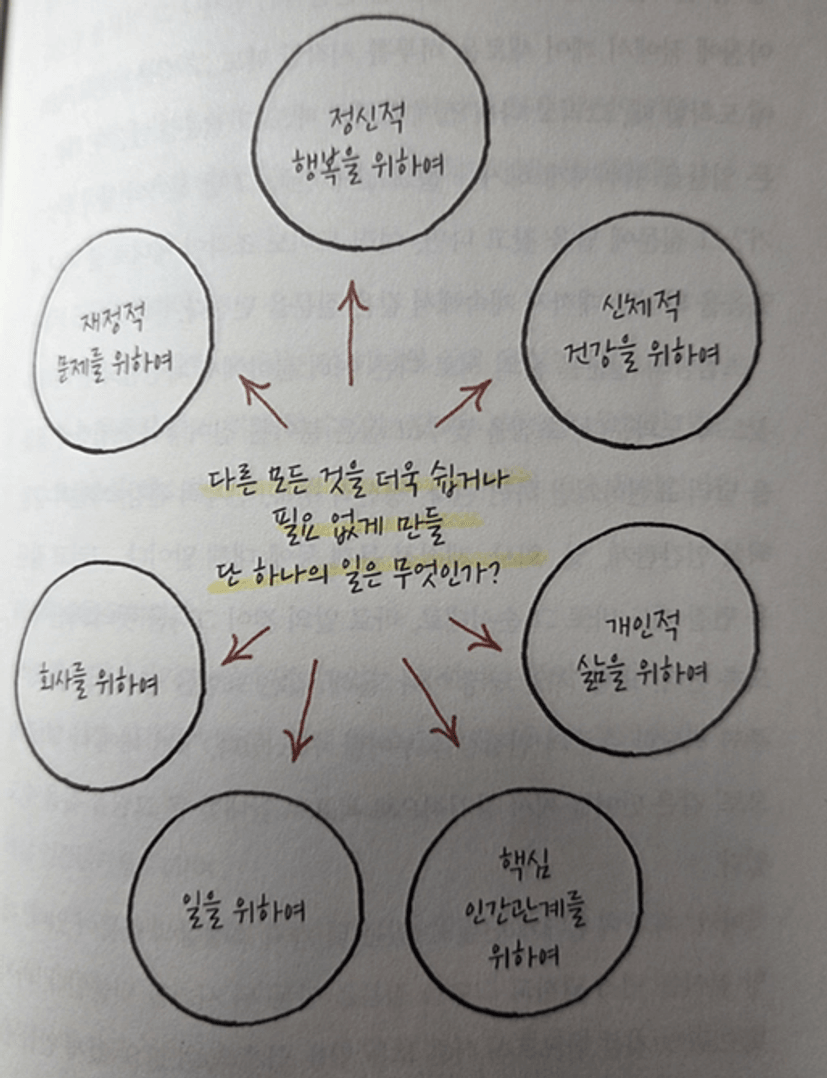 정신적
행복을 위하여
신체적
건강을 위하여
재정적
문제를 위하여
다른 모든 것을 더욱 쉽거나
필요 없게 만들
단 하나의 일은 무엇인가?
개인적
삶을 위하여
회사를 위하여
일을 위하여
핵심
인간관계를
위하여